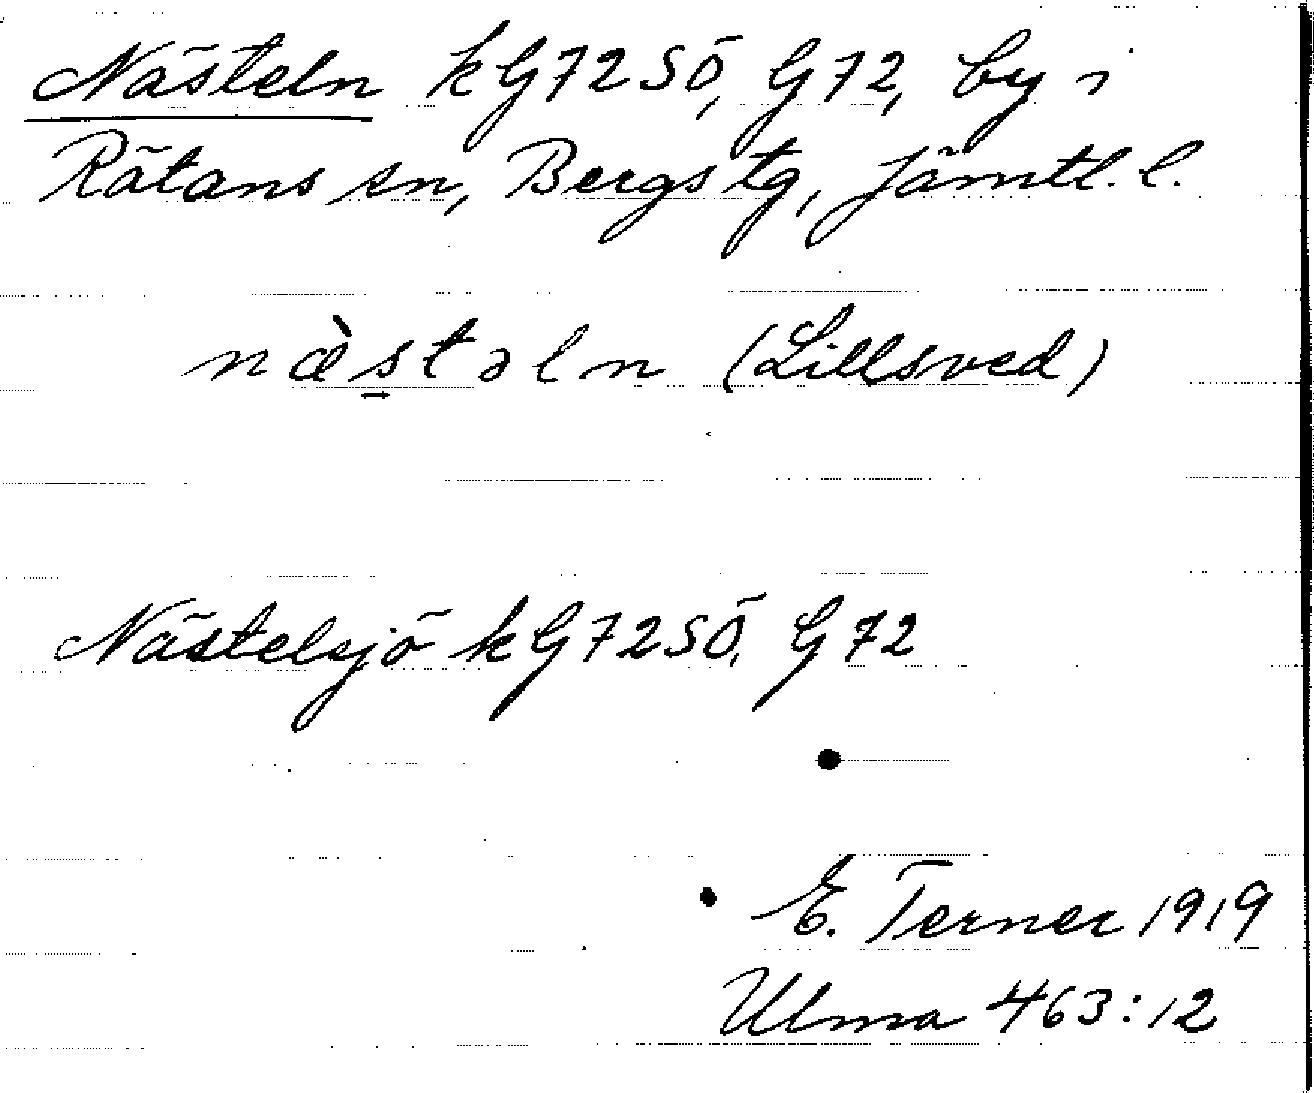 Nästeln kG72SÖ, G72, by i
Rätans sn, Bergs tg, Jämtl. l.
næ̀stəln (Lillsved)
Nästelsjö kG72SÖ, G72
E. Terner 1919
Ulma 463:12